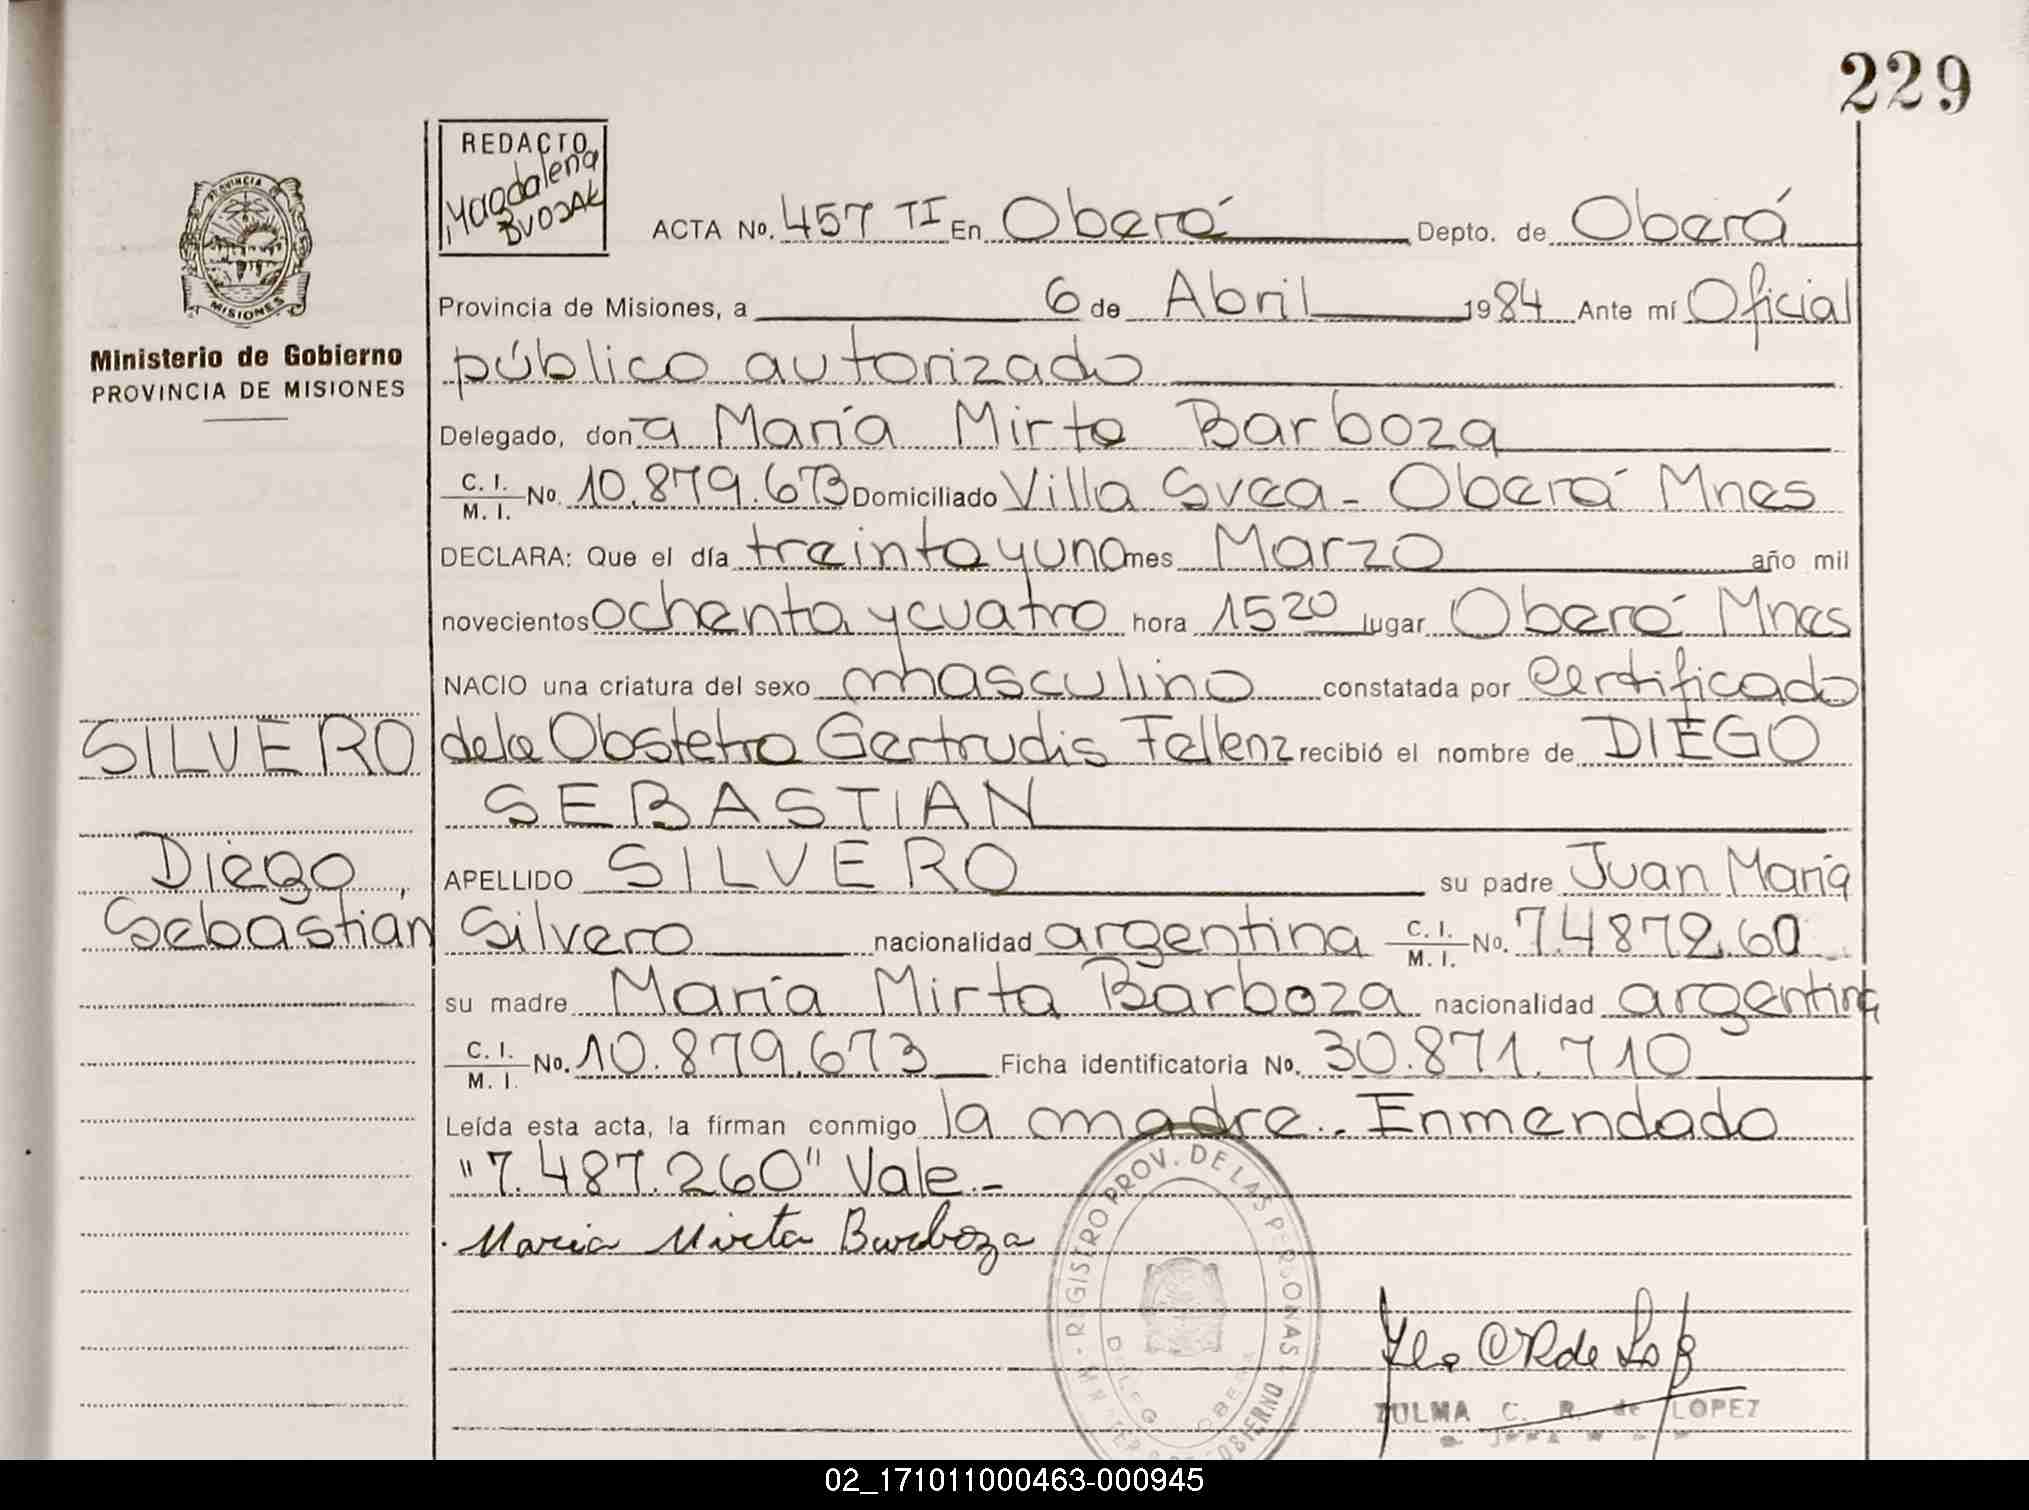 229
REDACTO
Magdalena
BVOSAK
PROVINCIA DE
MISIONES
Ministerio de Gobierno
PROVINCIA DE MISIONES
ACTA No. 457 TI En Oberá Depto. de Oberá
Provincia de Misiones, a 6 de Abril 1984 Ante mí Oficial
público autorizado
Delegado, don a María Mirta Barboza
C. I. / M. I. No. 10.879.673 Domiciliado Villa Svea - Oberá Mnes
DECLARA: Que el día treinta y uno mes Marzo año mil
novecientos ochenta y cuatro hora 15 20 lugar Oberá Mnes
NACIO una criatura del sexo masculino constatada por Certificado
SILVERO
de la Obstetra Gertrudis Fellenz recibió el nombre de DIEGO
SEBASTIAN
Diego
APELLIDO SILVERO su padre Juan María
Sebastián
Silvero nacionalidad argentina C. I. / M. I. No. 7.487.260
su madre María Mirta Barboza nacionalidad argentina
C. I. / M. I. No. 10.879.673 Ficha identificatoria No. 30.871.710
Leída esta acta, la firman conmigo la madre.. Enmendado
"7.487.260" Vale.-
Maria Mirta Barboza
REGISTRO PROV. DE LAS PERSONAS
GOBIERNO
ZULMA C. R. de LOPEZ
02_171011000463-000945